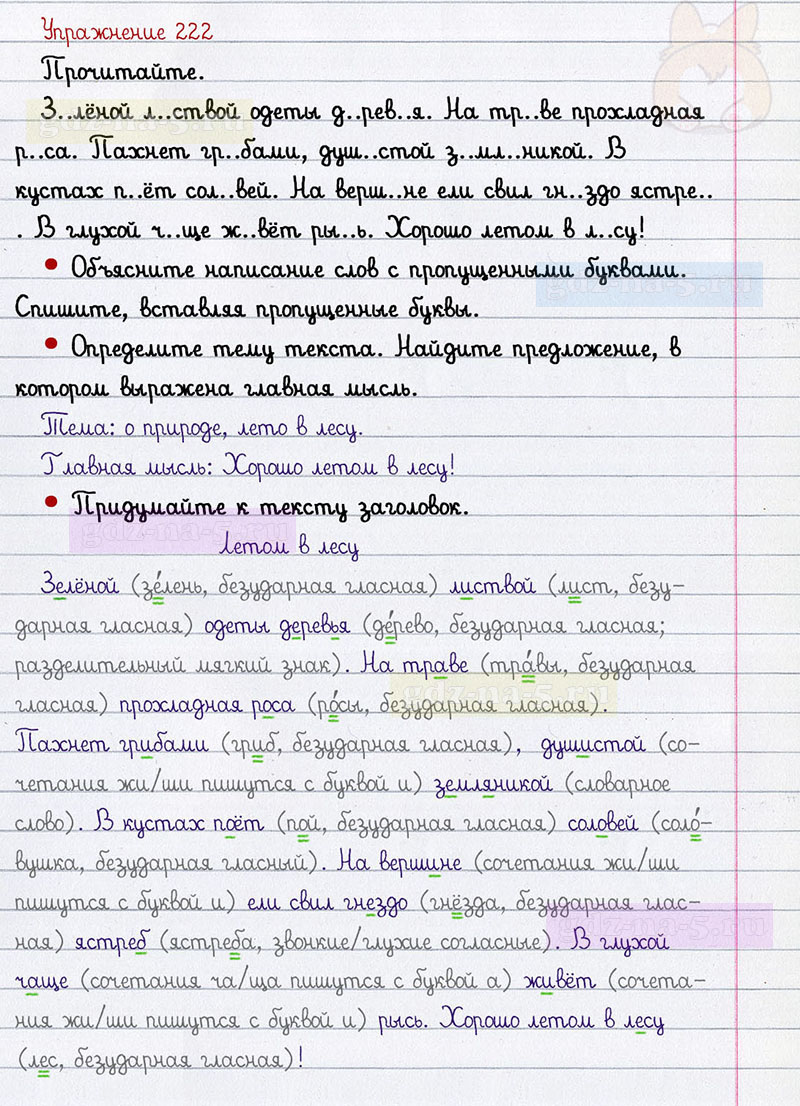 Упражнение 222
Прочитайте.
З..лёной л..ствой одеты д..рев..я. На тр..ве прохладная
р..са. Пахнет гр..бами, душ..стой з..мл..никой. В
кустах п..ёт сол..вей. На верш..не ели свил гн..здо ястре..
. В глухой ч..ще ж..вёт ры..ь. Хорошо летом в л..су!
• Объясните написание слов с пропущенными буквами.
Спишите, вставляя пропущенные буквы.
• Определите тему текста. Найдите предложение, в
котором выражена главная мысль.
Тема: о природе, лето в лесу.
Главная мысль: Хорошо летом в лесу!
• Придумайте к тексту заголовок.
Летом в лесу
Зелёной (зе́лень, безударная гласная) листвой (лист, безу-
дарная гласная) одеты деревья (де́рево, безударная гласная;
разделительный мягкий знак). На траве (тра́вы, безударная
гласная) прохладная роса (ро́сы, безударная гласная).
Пахнет грибами (гриб, безударная гласная), душистой (со-
четания жи/ши пишутся с буквой и) земляникой (словарное
слово). В кустах поёт (пой, безударная гласная) соловей (соло́-
вушка, безударная гласный). На вершине (сочетания жи/ши
пишутся с буквой и) ели свил гнездо (гнёзда, безударная глас-
ная) ястреб (ястреба, звонкие/глухие согласные). В глухой
чаще (сочетания ча/ща пишутся с буквой а) живёт (сочета-
ния жи/ши пишутся с буквой и) рысь. Хорошо летом в лесу
(лес, безударная гласная)!
gdz-na-5.ru
gdz-na-5.ru
gdz-na-5.ru
gdz-na-5.ru
gdz-na-5.ru